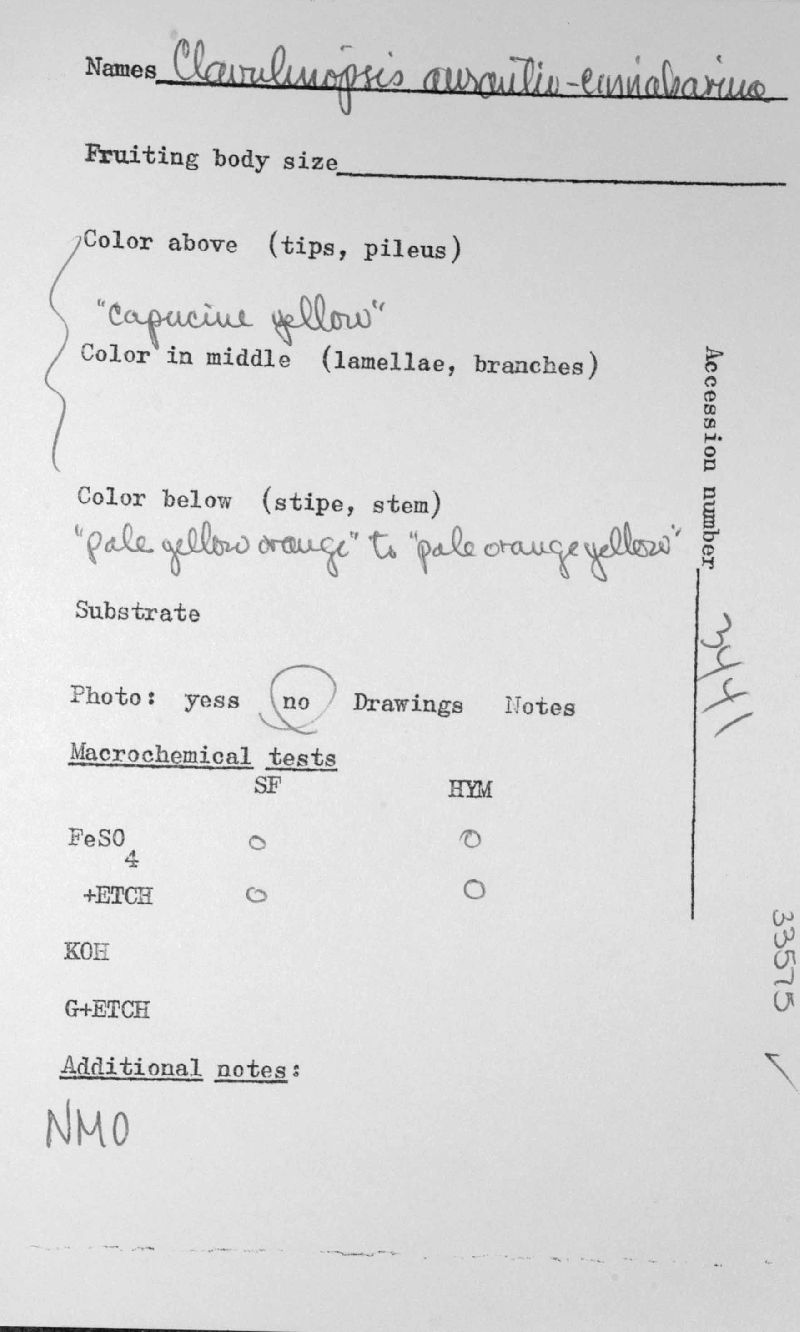 Names Clavulinopsis aurantio-cinnabarina
Fruiting body size
Color above (tips, pileus)
"capucine yellow"
Color in middle (lamellae, branches)
Color below (stipe, stem)
"pale yellow orange" to "pale orange yellow"
Substrate
Photo: yess no Drawings Notes
Macrochemical tests
SF HYM
FeSO4 O O
+ETCH O O
KOH
G+ETCH
Additional notes:
NMO
Accession number 3441
33575